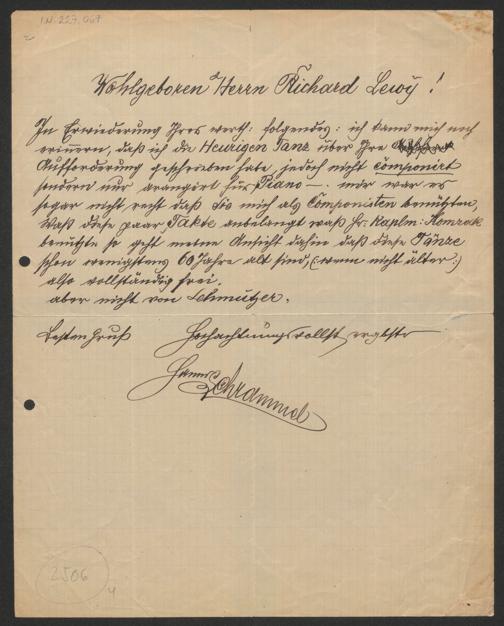 I.N. 227.067
Wohlgeboren Herrn Richard Lewÿ !
In Erwiederung Ihres werth: folgendes: ich kann mich noch
erinern, daß ich die Heurigen Tanz über Ihre
Aufforderung geschrieben habe, jedoch nicht componirt
sondern nur arangirt für Piano —. mir war es
sogar nicht recht daß Sie mich als Componisten benützten,
Waß diese paar Takte anbelangt waß Hr. Kaplm: Komzak
benützte so geht meine Ansicht dahin daß diese Tänze
schon wenigstens 60 Jahre alt sind, (: wenn nicht älter :)
also vollständig frei.
aber nicht von Schmutzer.
Besten Gruß Hochachtungsvollst ergebster
Hanns Schrammel
2506
4